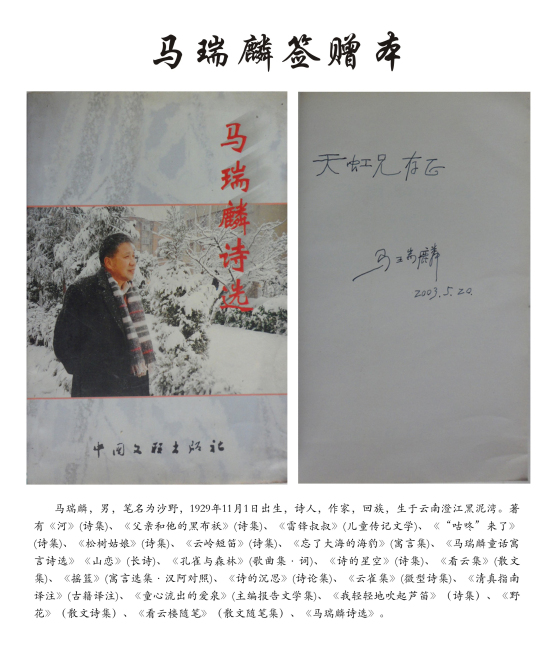 马瑞麟签赠本
马瑞麟诗选
中国文联出版社
天虹兄存正
马瑞麟
2003.5.20.
马瑞麟，男，笔名为沙野，1929年11月1日出生，诗人，作家，回族，生于云南澄江黑泥湾。著
有《河》(诗集)、《父亲和他的黑布袄》(诗集)、《雷锋叔叔》(儿童传记文学)、《“咕咚”来了》
(诗集)、《松树姑娘》(诗集)、《云岭短笛》(诗集)、《忘了大海的海豹》(寓言集)、《马瑞麟童话寓
言诗选》《山恋》(长诗)、《孔雀与森林》(歌曲集·词)、《诗的星空》(诗集)、《看云集》(散文
集)、《摇篮》(寓言选集·汉阿对照)、《诗的沉思》(诗论集)、《云雀集》(微型诗集)、《清真指南
译注》(古籍译注)、《童心流出的爱泉》(主编报告文学集)、《我轻轻地吹起芦笛》（诗集）、《野
花》（散文诗集）、《看云楼随笔》（散文随笔集）、《马瑞麟诗选》。